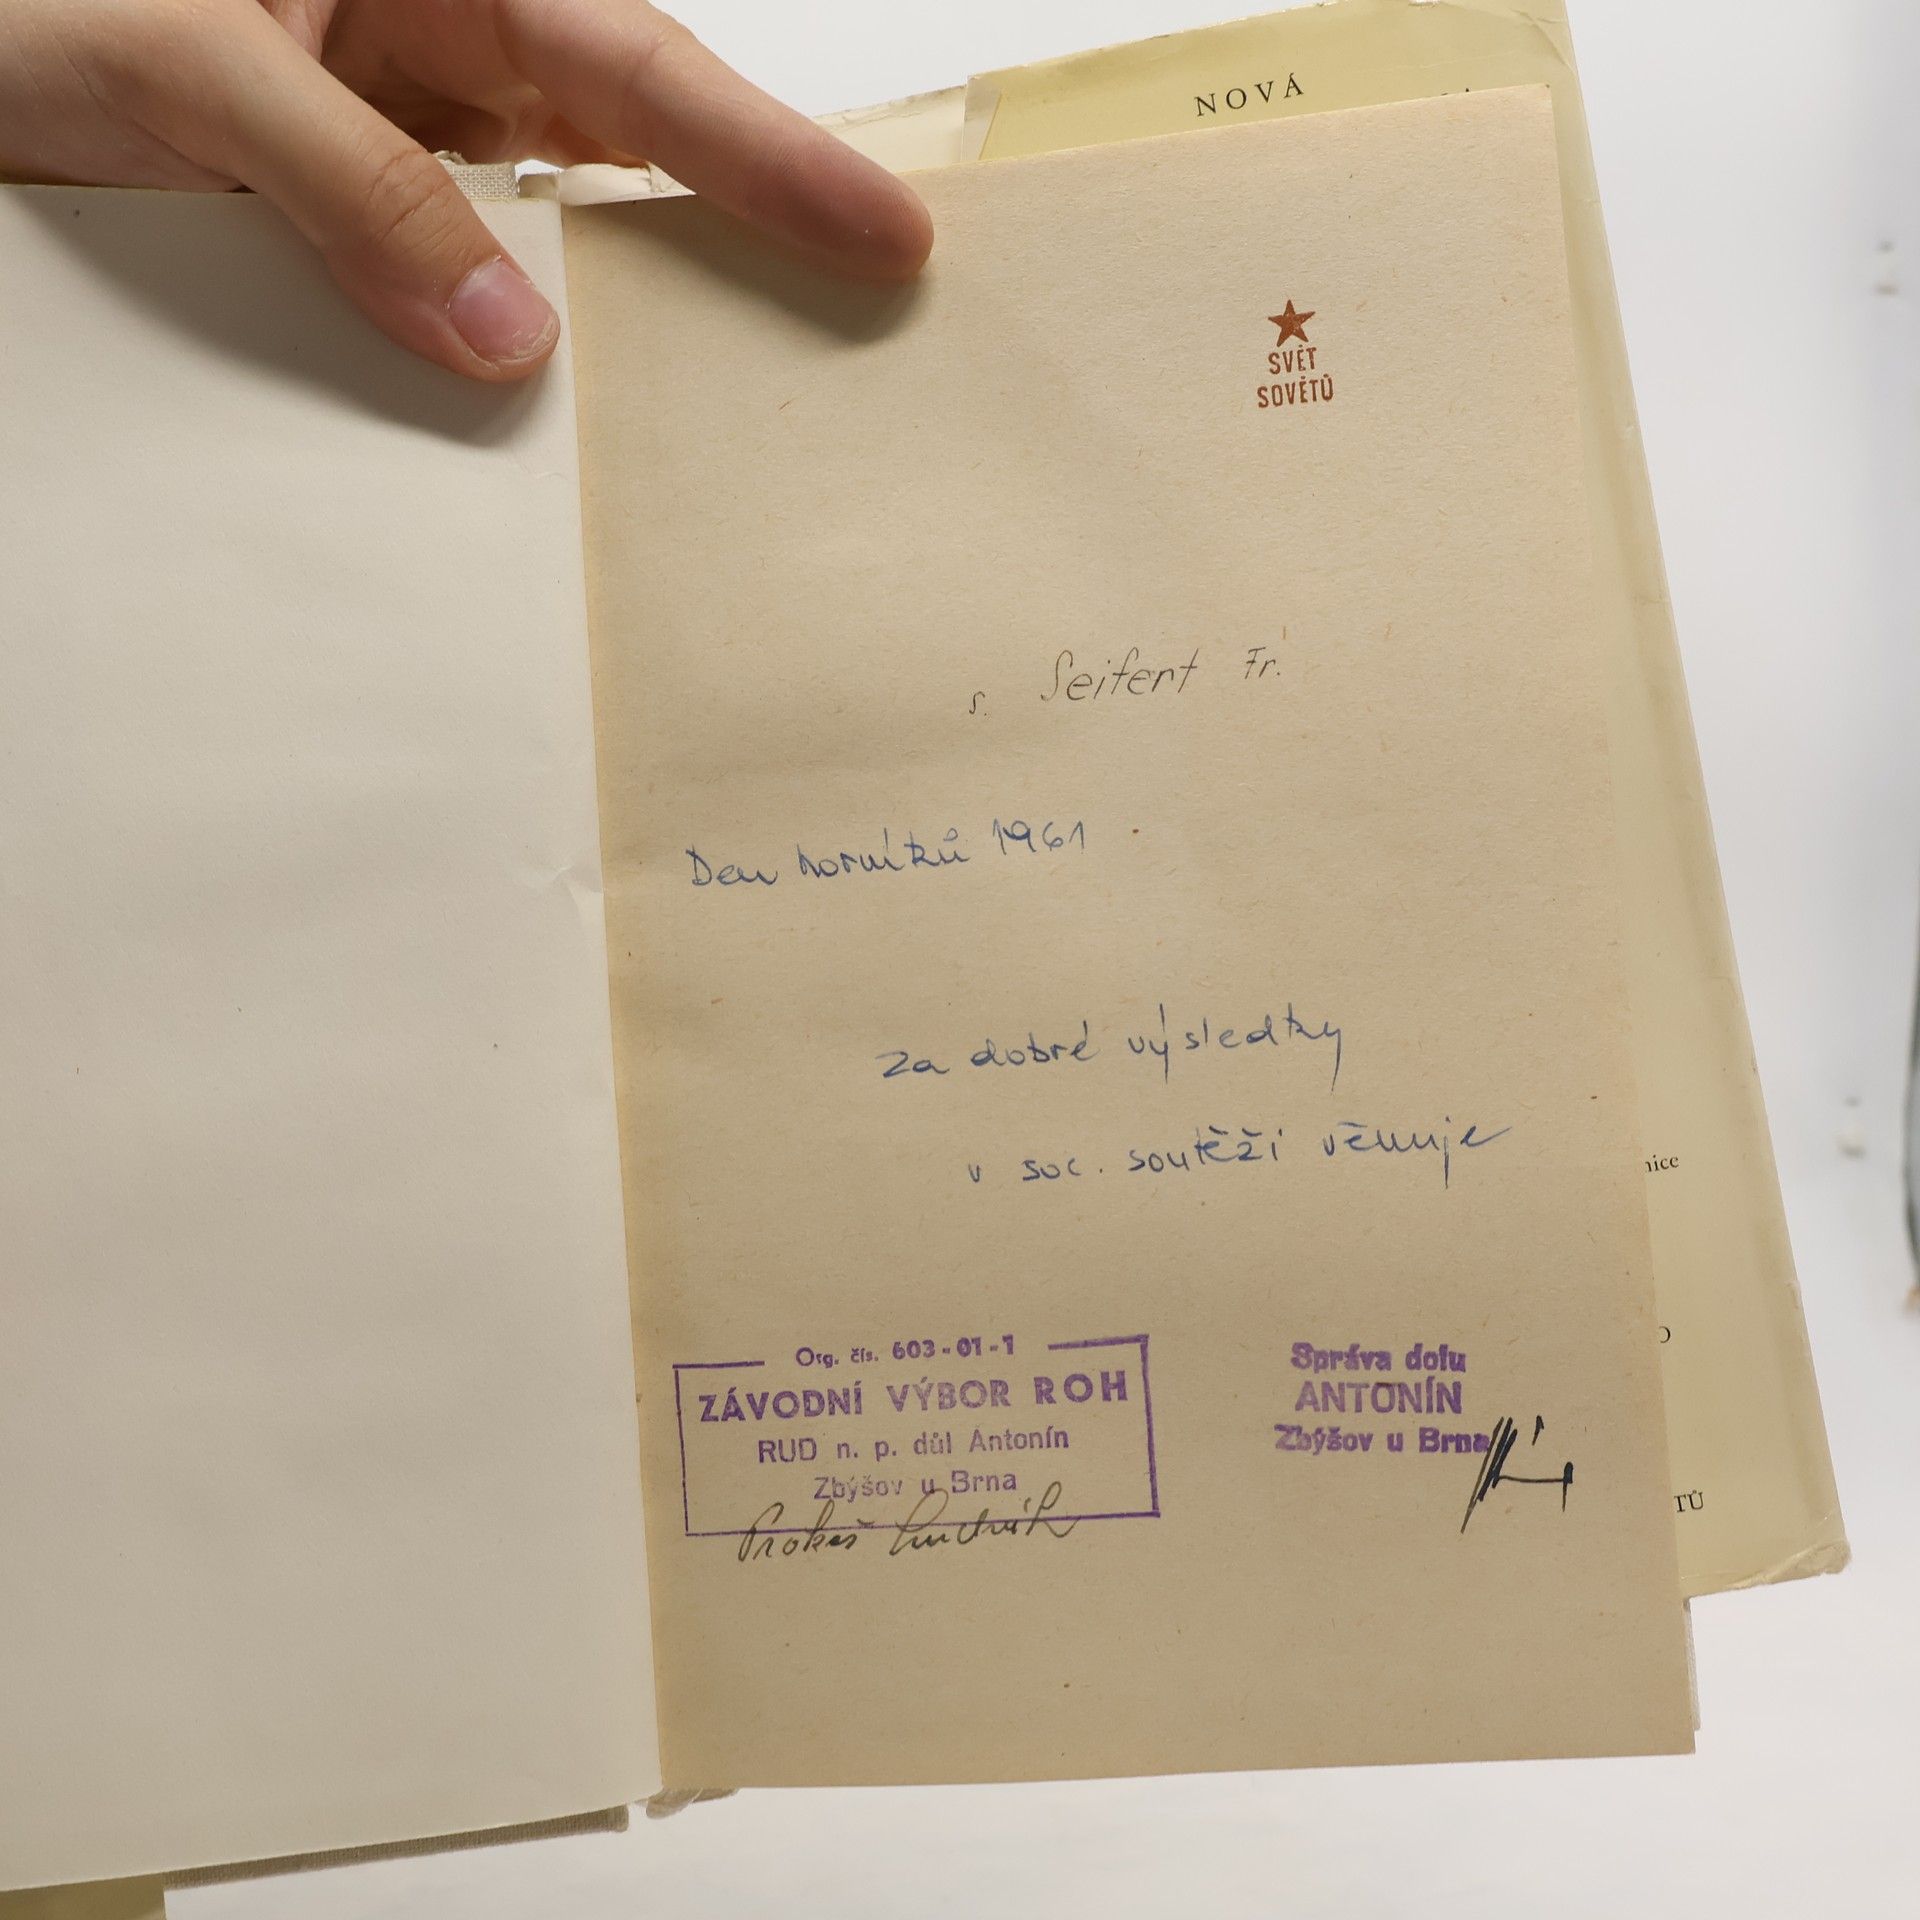 NOVÁ
SVĚT
SOVĚTŮ
s. Seifert Fr.
Den horníků 1961
za dobré výsledky
v soc. soutěži věnuje
Org. čís. 603-01-1
ZÁVODNÍ VÝBOR ROH
RUD n. p. důl Antonín
Zbýšov u Brna
Prokeš
Správa dolu
ANTONÍN
Zbýšov u Brna
nice
O
TŮ